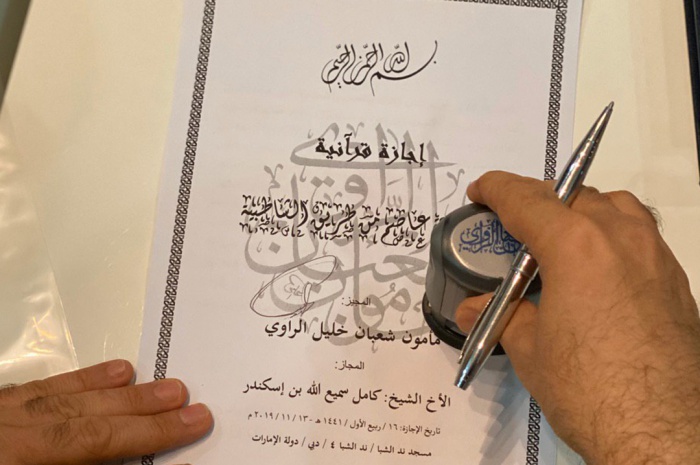 بسم الله الرحمن الرحيم
إجازة قرآنية
عاصم من طريق الشاطبية
المجيز:
مأمون شعبان خليل الراوي
المجاز:
الأخ الشيخ: كامل سميع الله بن إسكندر
تاريخ الإجازة: ١٦ / ربيع الأول / ١٤٤١ هـ - ١٣ / ١١ / ٢٠١٩ م
مسجد ند الشبا / ند الشبا ٤ / دبي / دولة الإمارات